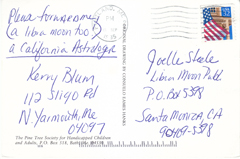 (a libra moon too!)
a California Astrologer
Kerry Blum
112 Sligo Rd
N. Yarmouth, Me
04097
The Pine Tree Society for Handicapped Children
and Adults, P.O. Box 518, Bath, Me 04530
Joelle Steele
Libra Moon Publ.
P.O. Box 5398
Santa Monica, CA
90409-5398